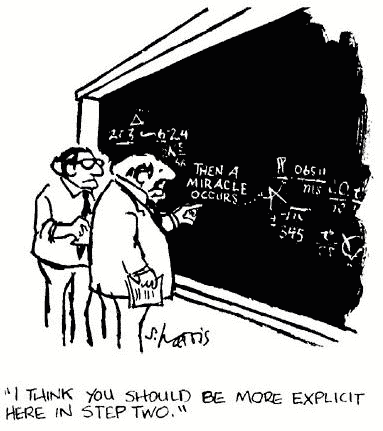 THEN A
MIRACLE
OCCURS
345
S. Harris
"I THINK YOU SHOULD BE MORE EXPLICIT
HERE IN STEP TWO."